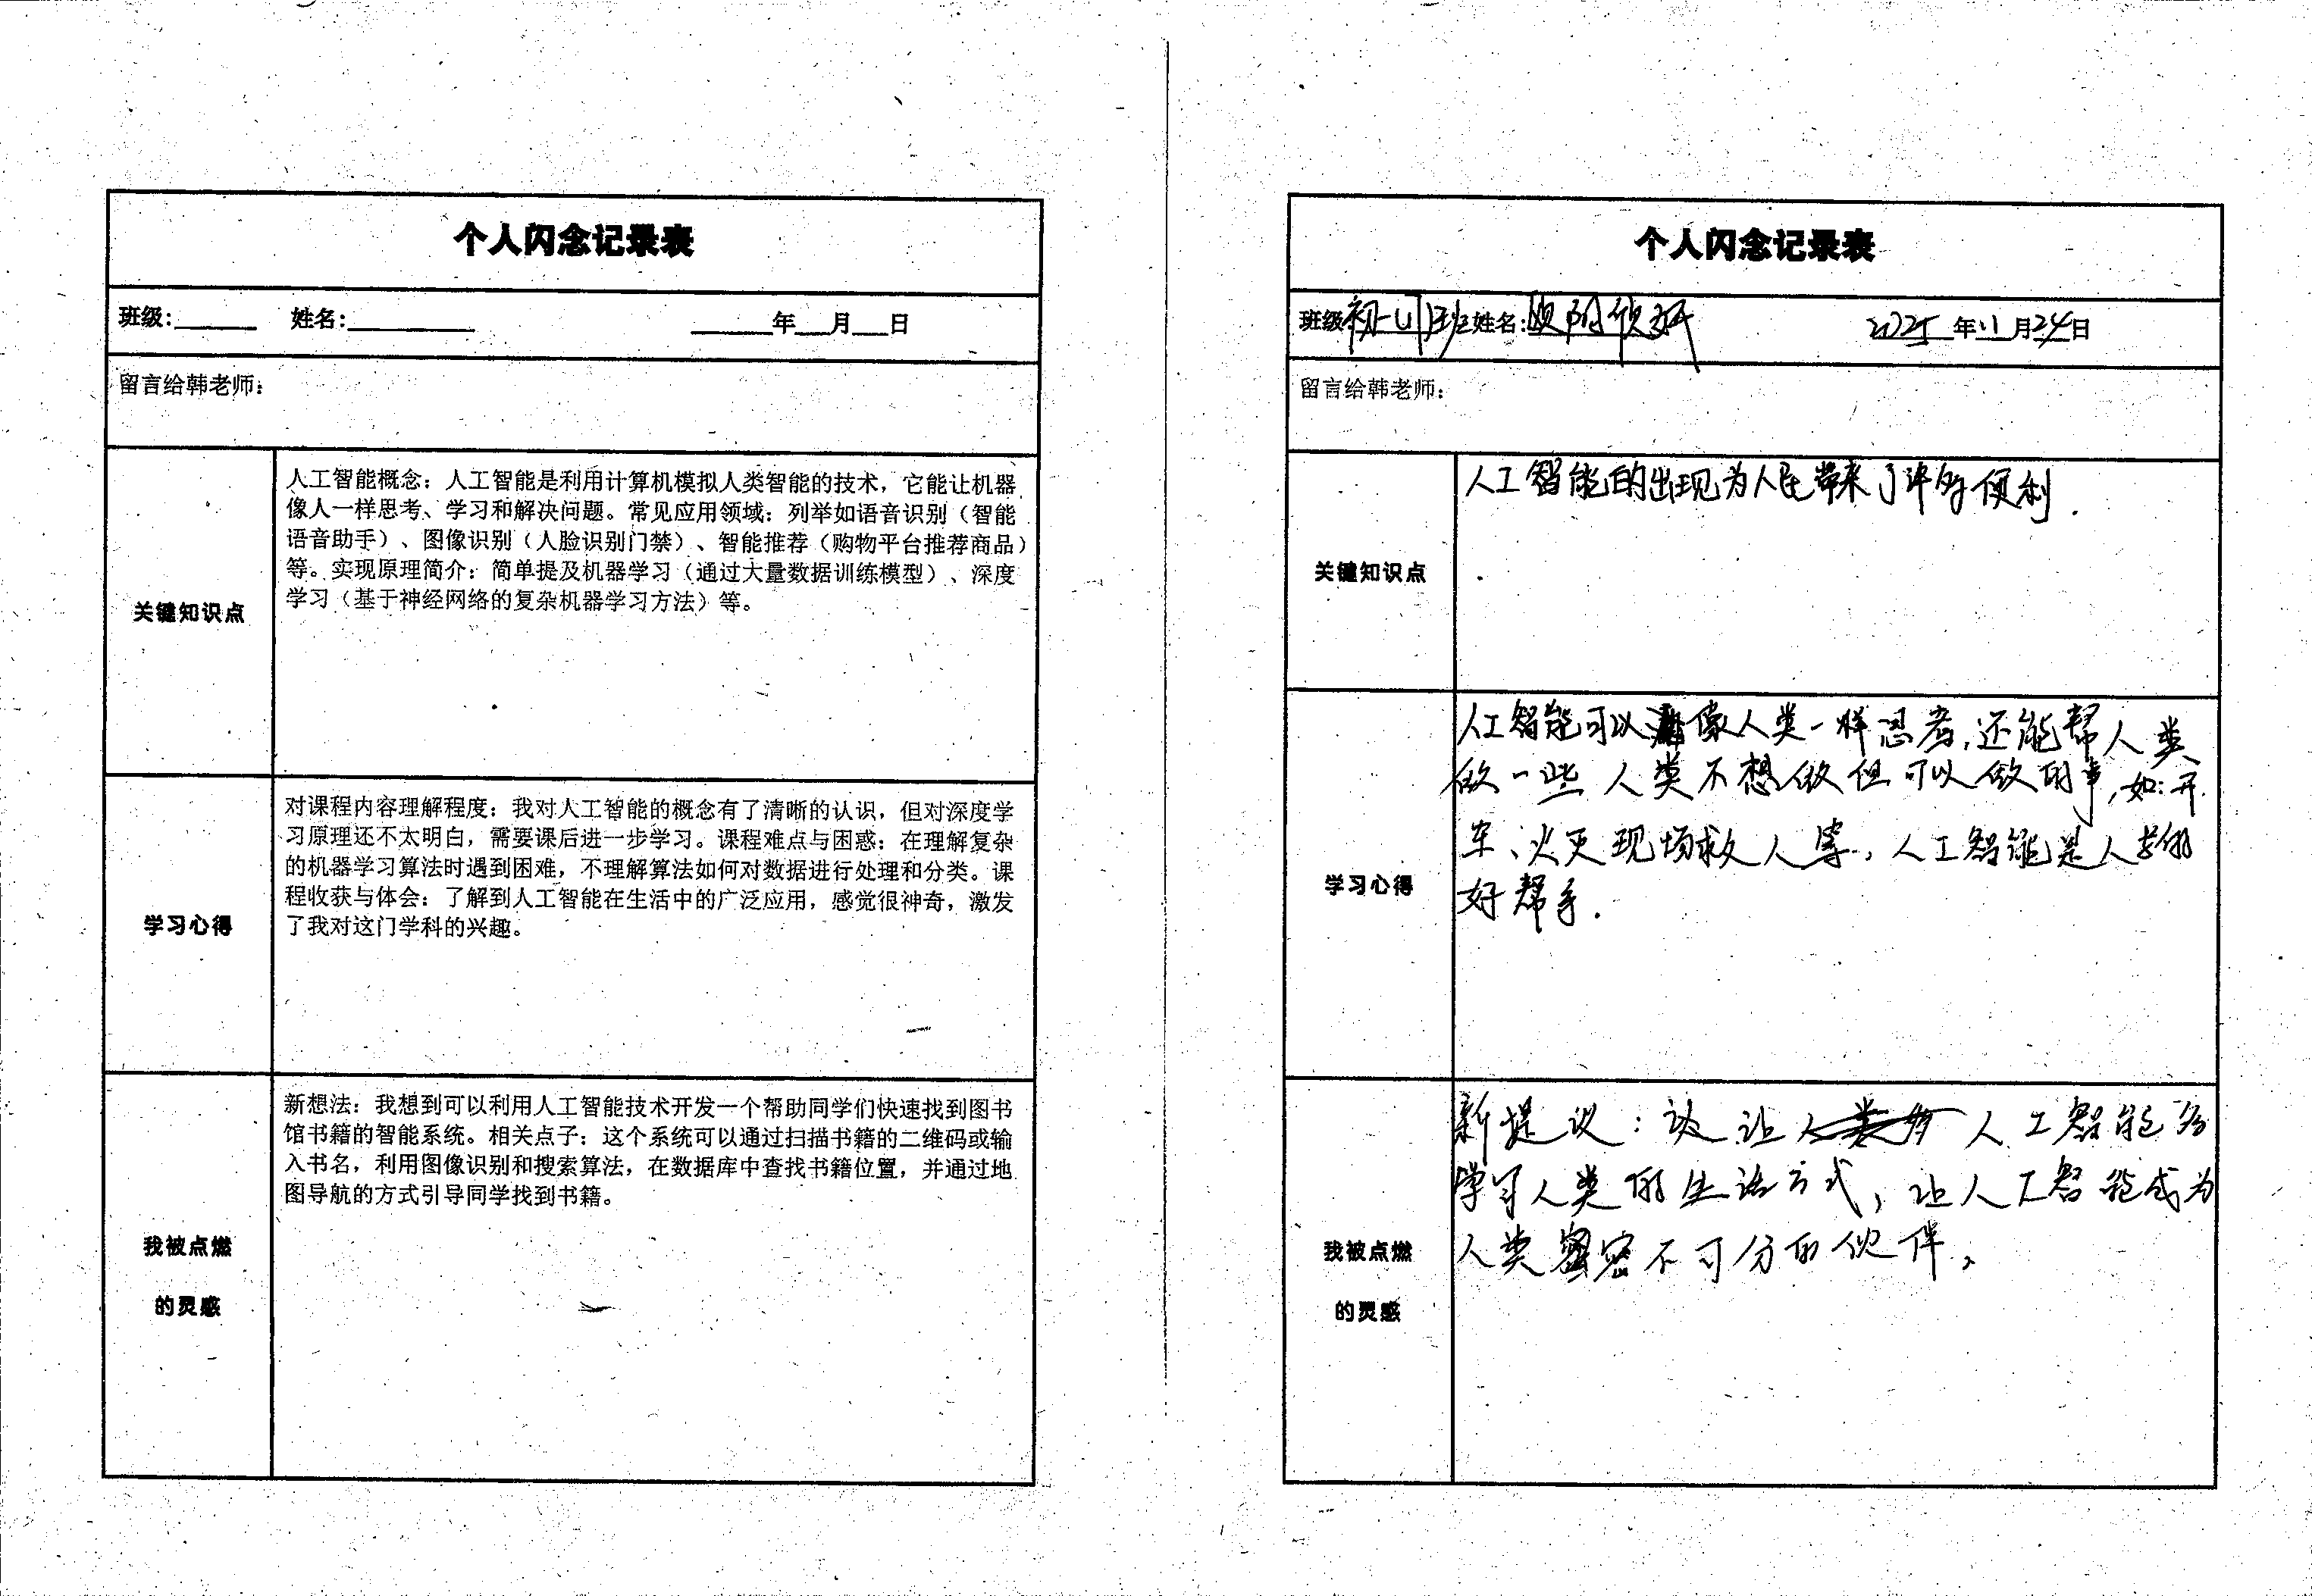 个人闪念记录表
班级:______ 姓名:_________ ______年__月__日
留言给韩老师:
关键知识点
人工智能概念：人工智能是利用计算机模拟人类智能的技术，它能让机器
像人一样思考、学习和解决问题。常见应用领域：列举如语音识别（智能
语音助手）、图像识别（人脸识别门禁）、智能推荐（购物平台推荐商品）
等。实现原理简介：简单提及机器学习（通过大量数据训练模型）、深度
学习（基于神经网络的复杂机器学习方法）等。
学习心得
对课程内容理解程度：我对人工智能的概念有了清晰的认识，但对深度学
习原理还不太明白，需要课后进一步学习。课程难点与困惑：在理解复杂
的机器学习算法时遇到困难，不理解算法如何对数据进行处理和分类。课
程收获与体会：了解到人工智能在生活中的广泛应用，感觉很神奇，激发
了我对这门学科的兴趣。
我被点燃
的灵感
新想法：我想到可以利用人工智能技术开发一个帮助同学们快速找到图书
馆书籍的智能系统。相关点子：这个系统可以通过扫描书籍的二维码或输
入书名，利用图像识别和搜索算法，在数据库中查找书籍位置，并通过地
图导航的方式引导同学找到书籍。
个人闪念记录表
班级 初一 班 姓名: 欧阳 2025年11月24日
留言给韩老师:
关键知识点
人工智能的出现为人民带来了许多便利.
学习心得
人工智能可以像人类一样思考,还能帮人类
做一些人类不想做但可以做的事,如:开
车、火灾现场救人等,人工智能是人类的
好帮手.
我被点燃
的灵感
新提议:该让人工智能多
学习人类的生活方式,让人工智能成为
人类密不可分的伙伴。